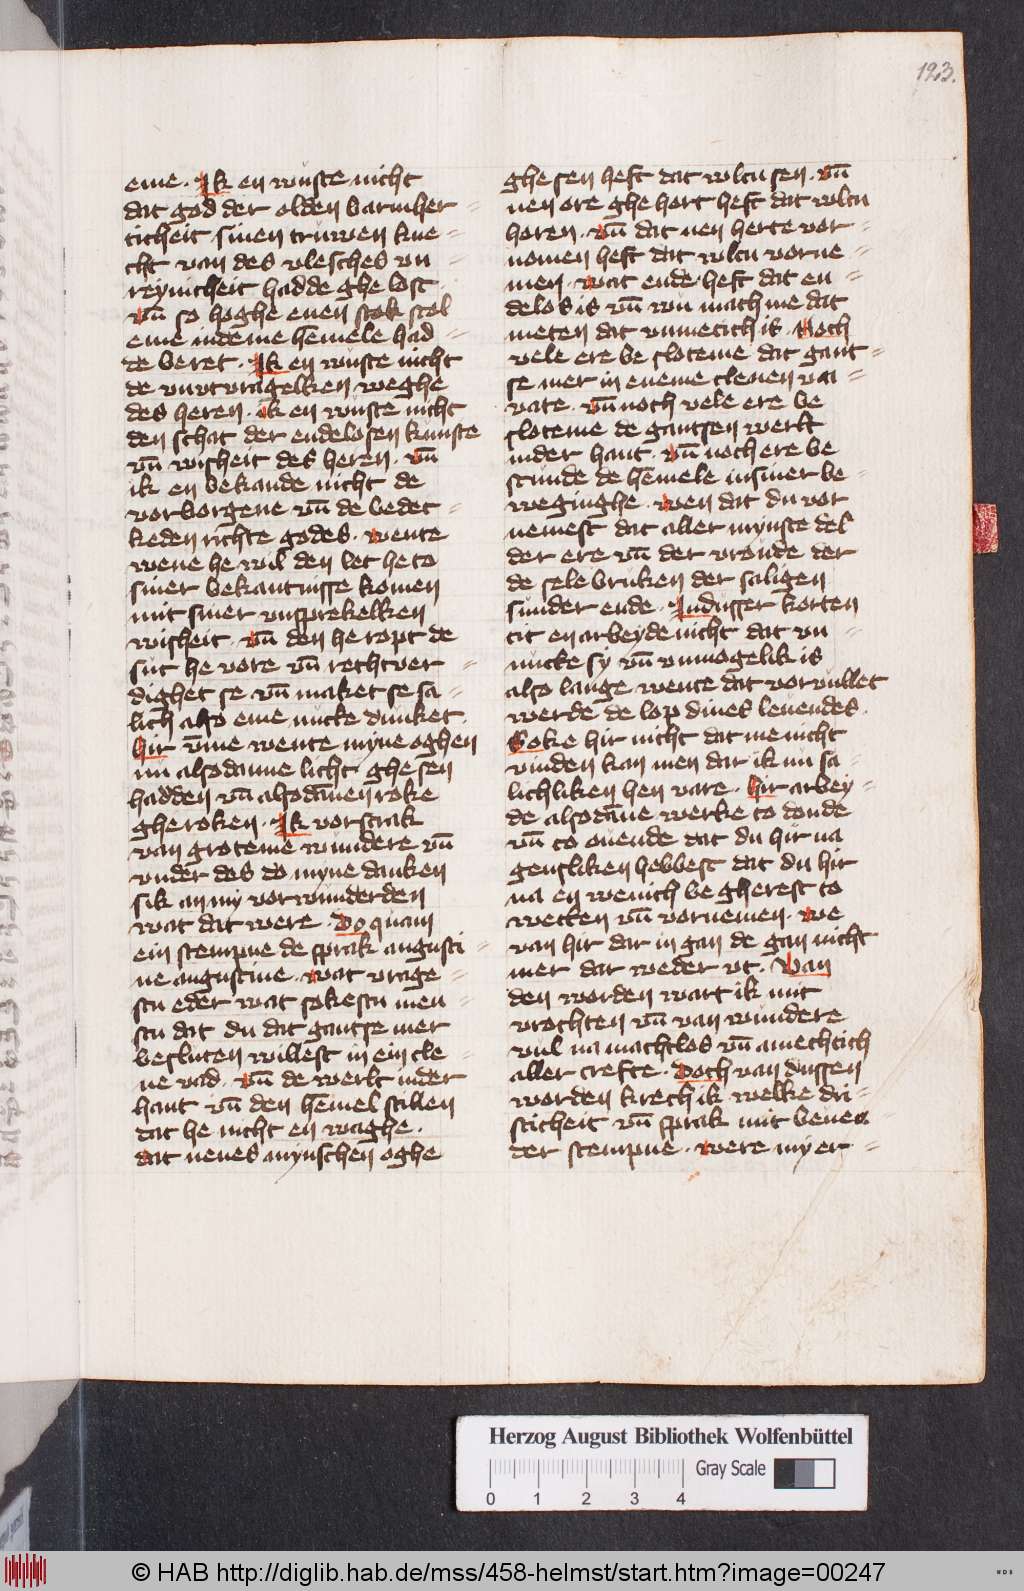 123.
eme. Ik en wuste nicht
dat god der olden barmher=
ticheit sinen truwen kne=
cht van des vlesches vn=
reynicheit hadde ghe lost
vn̄ so hoghe enen stok stol
eme indeme hēmele had=
de beret. Ik en wuste nicht
de vnvtvragelken weghe
des heren. ik en wuste nicht
den schat der endelosen kunste
vn̄ wisheit des heren. vn̄
ik en bekande nicht de
vorborgene vn̄ de bedec=
keden richte godes. wente
wene he wil den let he to
siner bekantnisse komen
mit siner vnsprekelken
wisheit. vn̄ den he ropt de
sut he vore vn̄ rechtver=
dighet se vn̄ maket se sa=
lich also eme nucke dunket.
Hir v̄me wente myne oghen
nu alsodanne licht ghe sen
hadden vn̄ alsodānen roke
ghe roken. Ik vorscrak
van groteme wundere vn̄
vnder des do myne danken
sik an my vorwunderden
wat dat were. Do quam
ein stempne de sprak augusti=
ne augustine. wat vrage=
stu eder wat sokestu men=
stu dat du dat gantse mer
besluten willest in ein cle=
ne vad. vn̄ de werlt inder
hant vn̄ den hēmel stillen
dat he nicht en waghe.
dat nenes mynschen oghe
ghe sen heft dat wltu sen. vn̄
nen ore ghe hort heft dat wltu
horen. vn̄ dat nen herte vor=
nomen heft dat wltu vorne=
men. wat ende heft dat en=
delos is vn̄ wu mach me dat
meten dat vnmetich is. Noch
vele ere be sloteme dat gant=
se mer in eneme clenen va=
vate. vn̄ noch vele ere be
sloteme de gantsen werlt
inder hant. vn̄ noch ere be
stunde de hēmele insiner be=
weginghe. wen dat du vor
nemest dat aller mynste del
der ere vn̄ der vroude der
de sele bruken der saligen
sunder ende. Indusser korten
tit en arbeyde nicht dat vn=
nucke sy vn̄ vnmogelik is
also lange wente dat vorvullet
werde de lop dines levendes.
Soke hir nicht dat me nicht
vinden kan men dar ik nu sa=
lichliken hen vare. Hir arbey=
de alsodāne werke to donde
vn̄ to ouende dat du hir na
gensliken hebbest dat du hir
na en wenich be gherest to
wecken vn̄ vornemen. we
van hir dar in gan de gan nicht
mer dar weder vt. Van
den worden wart ik mit
vrochten vn̄ van wundere
vul na machtlos vn̄ amechtich
aller crefte. Doch van dussen
worden krech ik welke dri=
sticheit vn̄ sprak mit beuen
der stempne. were my er=
Herzog August Bibliothek Wolfenbüttel
Gray Scale
0 1 2 3 4
© HAB http://diglib.hab.de/mss/458-helmst/start.htm?image=00247